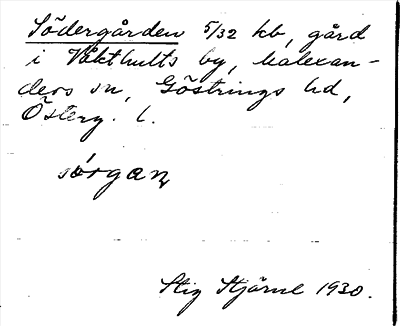 Södergården 5/32 kb, gård
i Våkthults by, Malexan-
ders sn, Göstrings hd,
Österg. l.
Stig Stjärne 1930.